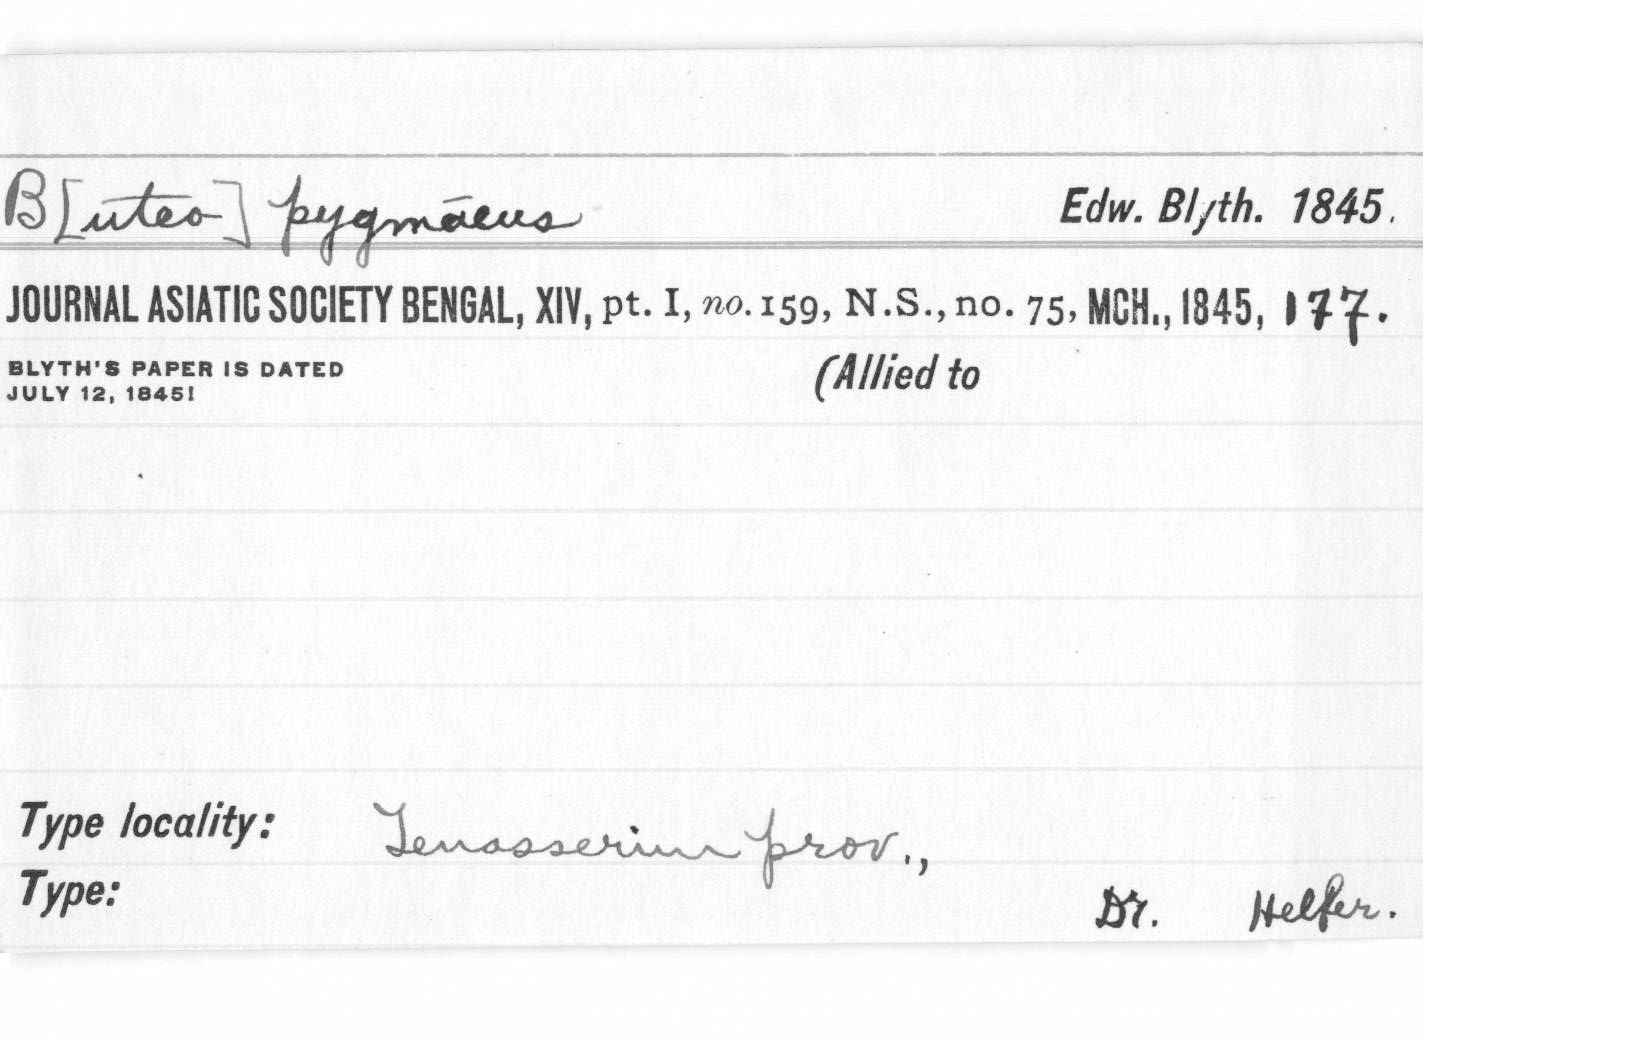 B[uteo] pygmaeus Edw. Blyth. 1845.
JOURNAL ASIATIC SOCIETY BENGAL, XIV, pt. I, no. 159, N.S., no. 75, MCH., 1845, 177.
BLYTH'S PAPER IS DATED (Allied to
JULY 12, 1845!
Type locality: Tenasserim prov.,
Type: Dr. Helfer.